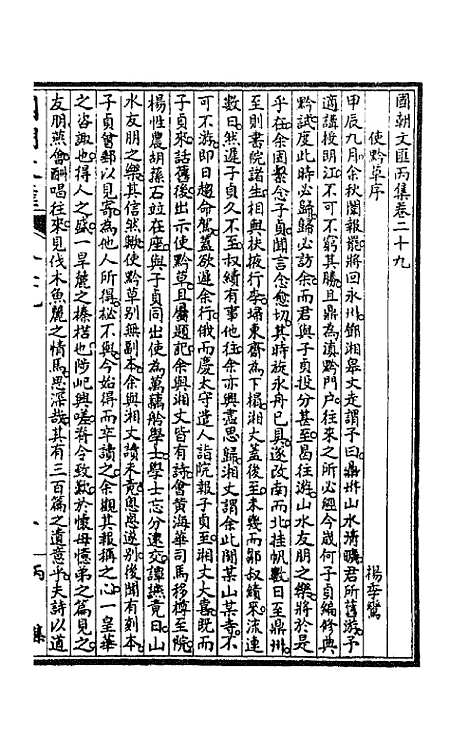 國朝文匯丙集卷二十九
使黔草序
楊季鸞
甲辰九月余秋闈報罷將回永州鄧湘皋文走謂子曰鼎州山水清曠君所舊游予
適講授朗江不可不窮其勝且鼎為滇黔門户往來之所必經今歲何子貞編修典
黔試度此時必歸歸必訪余而君與子貞投分甚至曷往游山水友朋之樂將於是
乎在余固繫念子貞聞言愈切其時族永舟已具遂改南而北挂帆數日至鼎州
至則書院諸生相與扶掖行李埽東齋為下榻湘丈蓋後至未幾而鄒叔績來流連
數日然遲子貞久不至叔績有事他往余亦興盡思歸湘丈謂余此間某山某寺不
可不游即日趨命駕蓋欲遲余行俄而慶太守遣人詣院報子貞至湘丈大喜既而
子貞來話舊後出示使黔草且屬題記余與湘丈皆有詩會黃海華司馬移樽至院
楊性農胡孫石竝在座與子貞同出使為萬藕舲學士學士忘分速交譚讌竟日山
水友朋之樂其信然歟使黔草别無副本余與湘丈讀未竟恩恩遂别後聞有刻本
子貞曾郵以見寄為他人所得秘不與今始得而卒讀之余觀其報稱之心一皇華
之咨諏也得人之盛一旱麓之榛楛也陟屺興嗟脊令致歎於懷母憶弟之篇見之
友朋燕會酬唱往來見伐木魚麗之情焉思深哉其有三百篇之遺意乎夫詩以道
丙
集